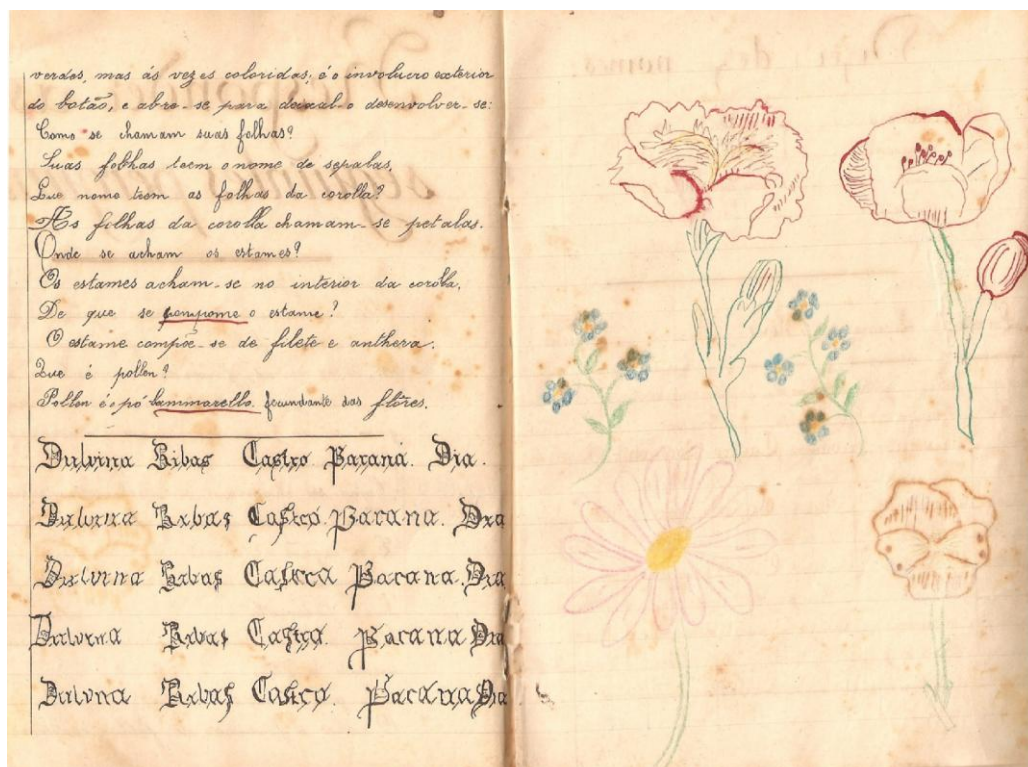 verdes, mas ás vezes coloridas; é o involucro exterior
do botão, e abre-se para deixal-o desenvolver-se:
Como se chamam suas folhas?
Suas folhas teem o nome de sepalas.
Que nome teem as folhas da corolla?
As folhas da corolla chamam-se petalas.
Onde se acham os estames?
Os estames acham-se no interior da corolla.
De que se compome o estame?
O estame compõe-se de filete e anthera.
Que é pollen?
Pollen é o pó fecundante das flôres.
Dulvina Ribas Castro Paraná. Dia.
Dulvina Ribas Castro. Parana. Dia
Dulvina Ribas Castro Parana. Dia
Dulvina Ribas Castro. Parana Dia
Dulvina Ribas Castro. Parana Dia